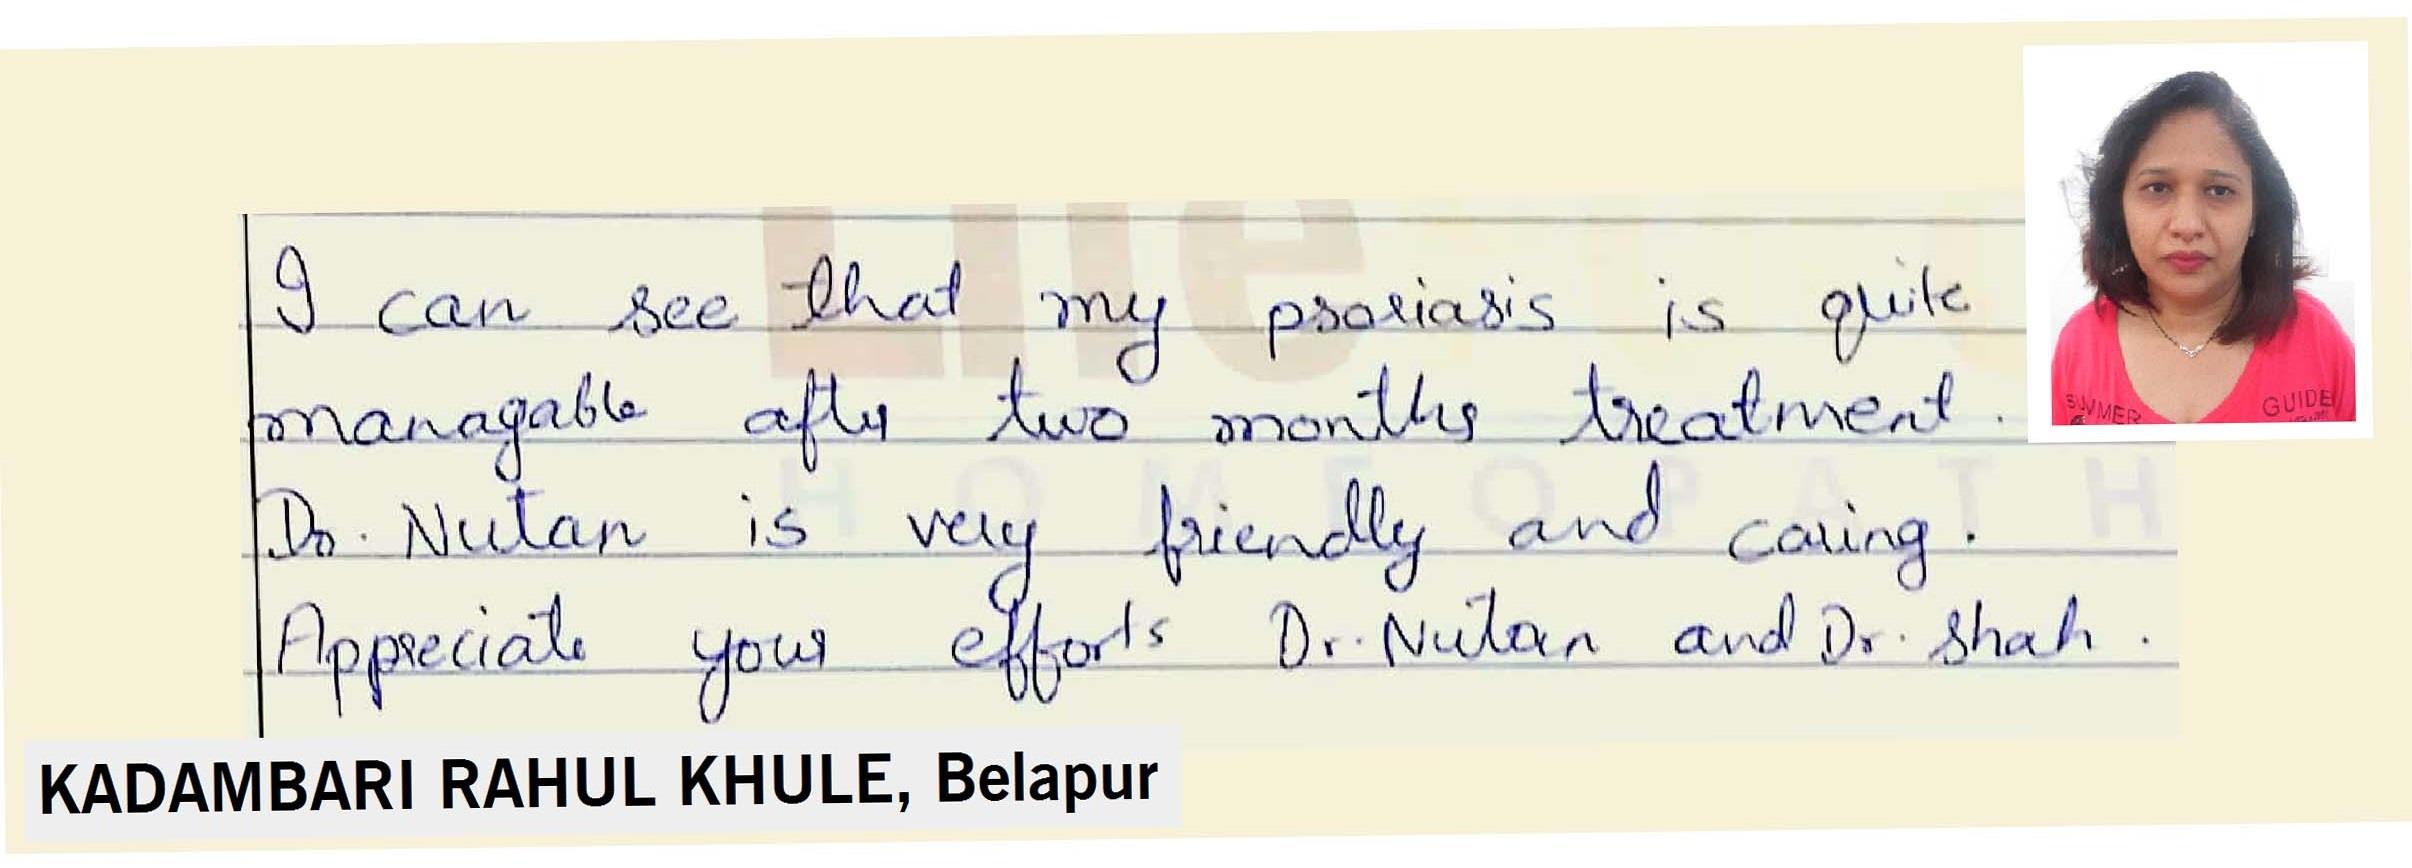 Life
I can see that my psoriasis is quite
managable after two months treatment.
HOMEOPATH
Dr. Nutan is very friendly and caring.
Appreciate your efforts Dr. Nutan and Dr. Shah.
KADAMBARI RAHUL KHULE, Belapur
SUMMER GUIDE